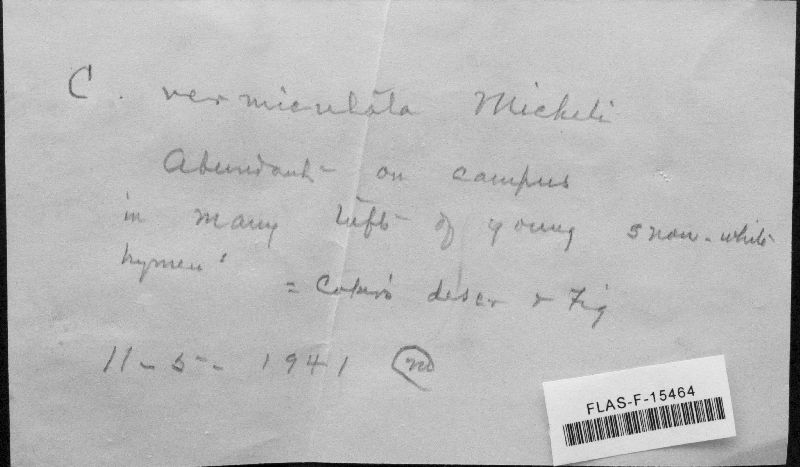 C. vermiculata Micheli
Abundant - on campus
in many tufts of young snow-white
hymen'
= Coker's descr & Fig
11-5-1941 m
FLAS-F-15464